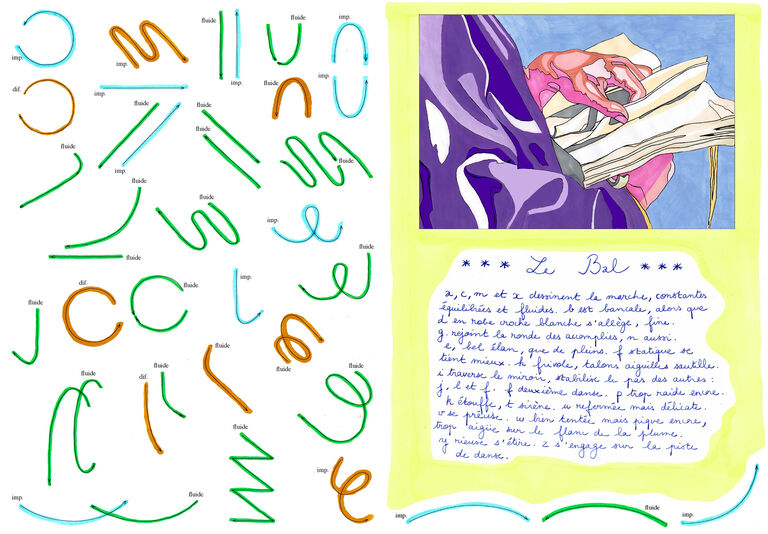 fluide
fluide
imp.
imp.
imp.
fluide
imp.
imp.
imp.
dif.
fluide
fluide
fluide
fluide
fluide
fluide
imp.
fluide
fluide
imp.
fluide
fluide
imp.
dif.
fluide
fluide
fluide
fluide
fluide
fluide
fluide
dif.
fluide
imp.
imp.
fluide
*** Le Bal ***
a, c, m et x dessinent la marche, constantes
équilibrées et fluides. b est bancale, alors que
d en robe croche blanche s'allège, fine.
g rejoint la ronde des accomplies, n aussi.
e, bel élan, que de pleins. f statique se
tient mieux. h frivole, talons aiguilles sautille.
i traverse le miroir, stabilise le pas des autres :
j, l et f. f deuxième danse. p trop raide encore.
k étouffe, t sirène. u refermée mais délicate.
v se précise. w bien tentée mais pique encre,
trop aigüe sur le flanc de la plume.
y rieuse s'étire. z s'engage sur la piste
de danse.
fluide
imp.
imp.